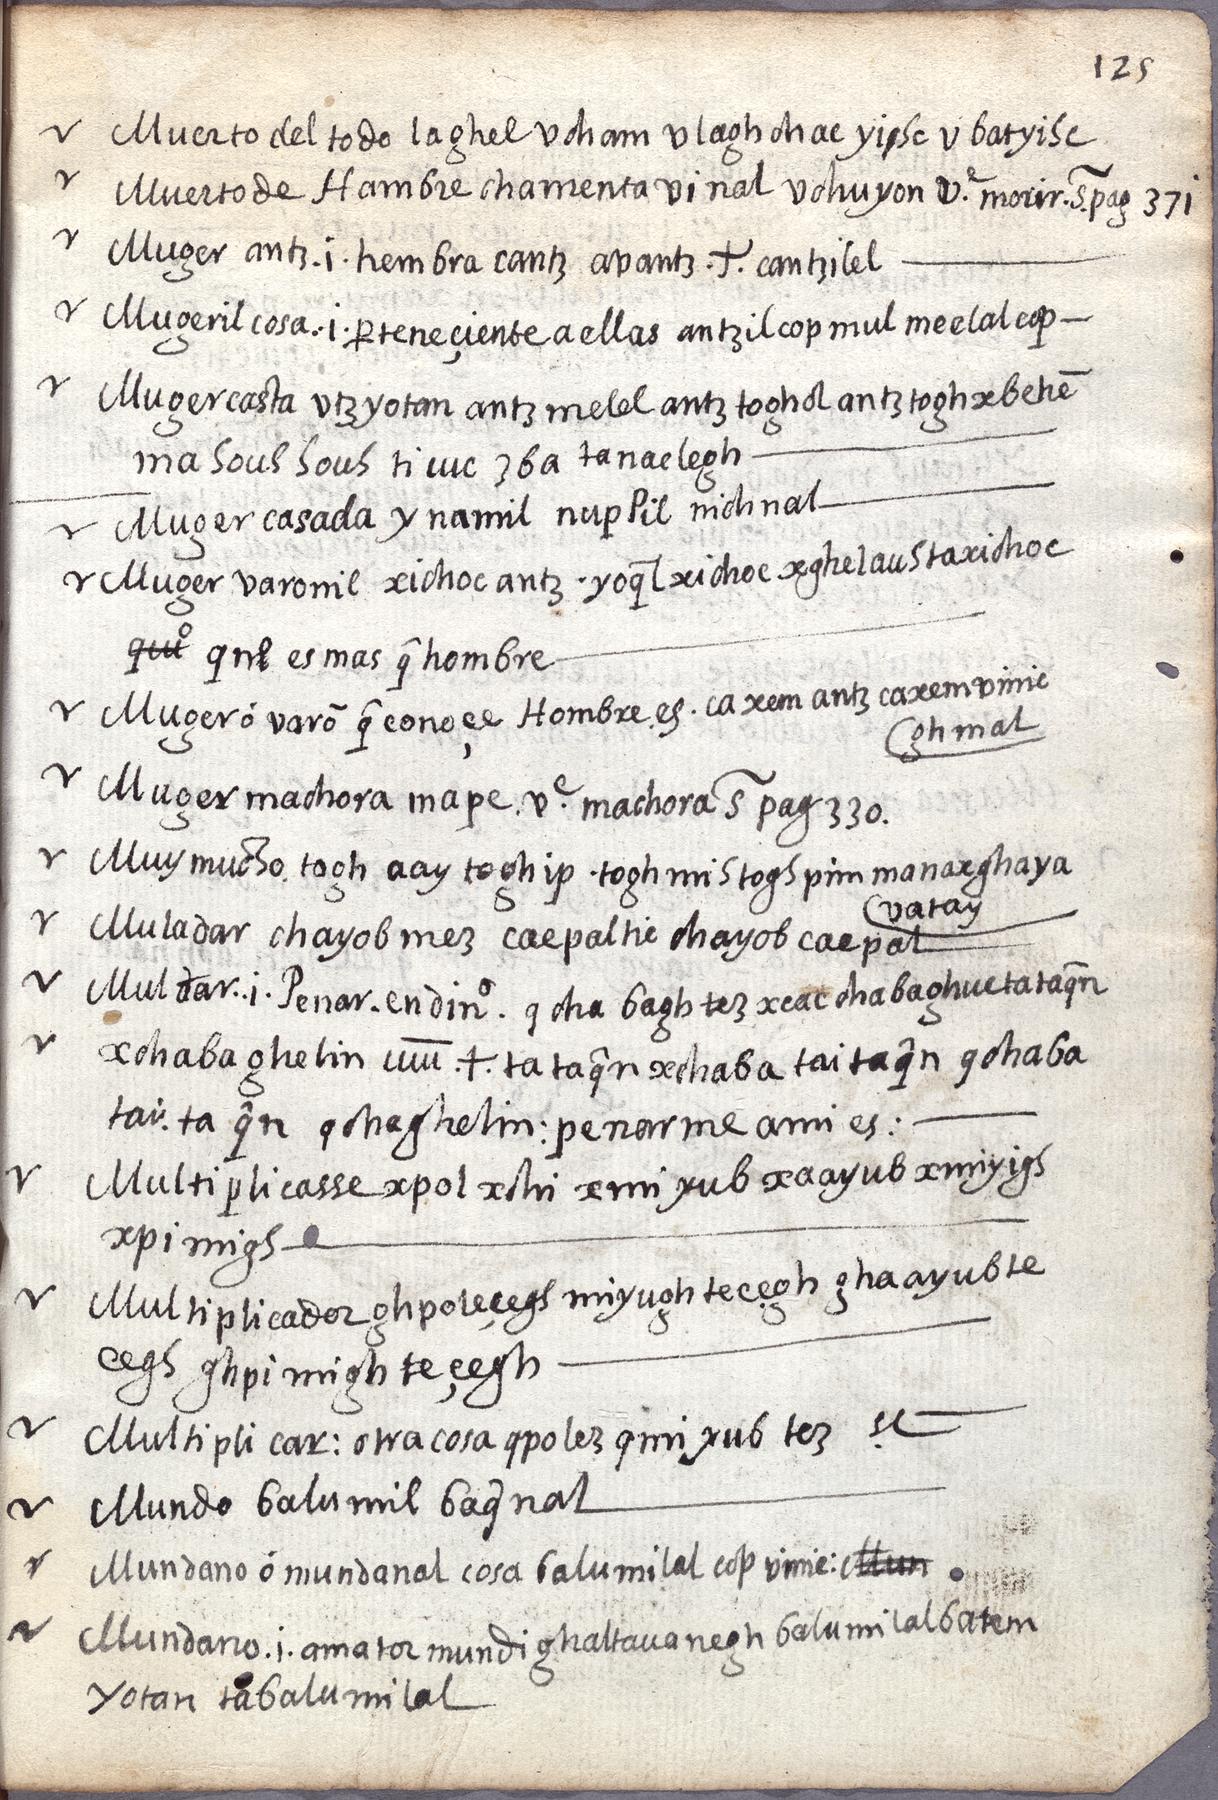 125
Muerto del todo laghel vcham vlagh chac yipsc v batyisc
Muerto de Hambre chamenta vi nal vchuyon v.e morir. S. pag 371
Muger antz .i. hembra cantz avantz .t. cantzilel
Mugeril cosa .i. perteneçiente a ellas antzil cop mul meelal cop
Muger casta vtz yotan antz melel antz toghol antz togh xbehē
ma
Muger casada y namil nupPil nichnal
Muger varonil xichoc antz . yoq̄l xichoc xghel taxichoc
qnl es mas q̄ hombre
Muger ó varō q̄ conoçe Hombre es . ca xem antz caxem vinic
ghmal
Muger machora mape . v.e machora S pag 330.
Muy mucho togh aay toghip . togh mis toghs pim manaxghaya
vatay
Muladar chayob mez caepaltic chayob caepal
Mul dar .i. Penar . en dino . q cha bagh tez xcac chabaghuc ta taq̄n
xchaba ghelin .t. ta taq̄n xchaba tai taq̄n qchaba
tai. ta q̄n qchaghelin : penarme a mi es :
Multiplicasse xpol xchi xmi yub xaayub xmiyighs
xpimighs
Multiplicador ghpoleçeghs miyugh teçegh ghaayubte
ceghs ghpimigh teçegh
Multipli car : otra cosa qpolez qmi yub tez
Mundo balumil baq̄nal
Mundano ó mundanal cosa balumilal cop vinic : Mun
Mundano .i. amator mundi ghaltavanegh balumilal batem
yotan ta balumilal